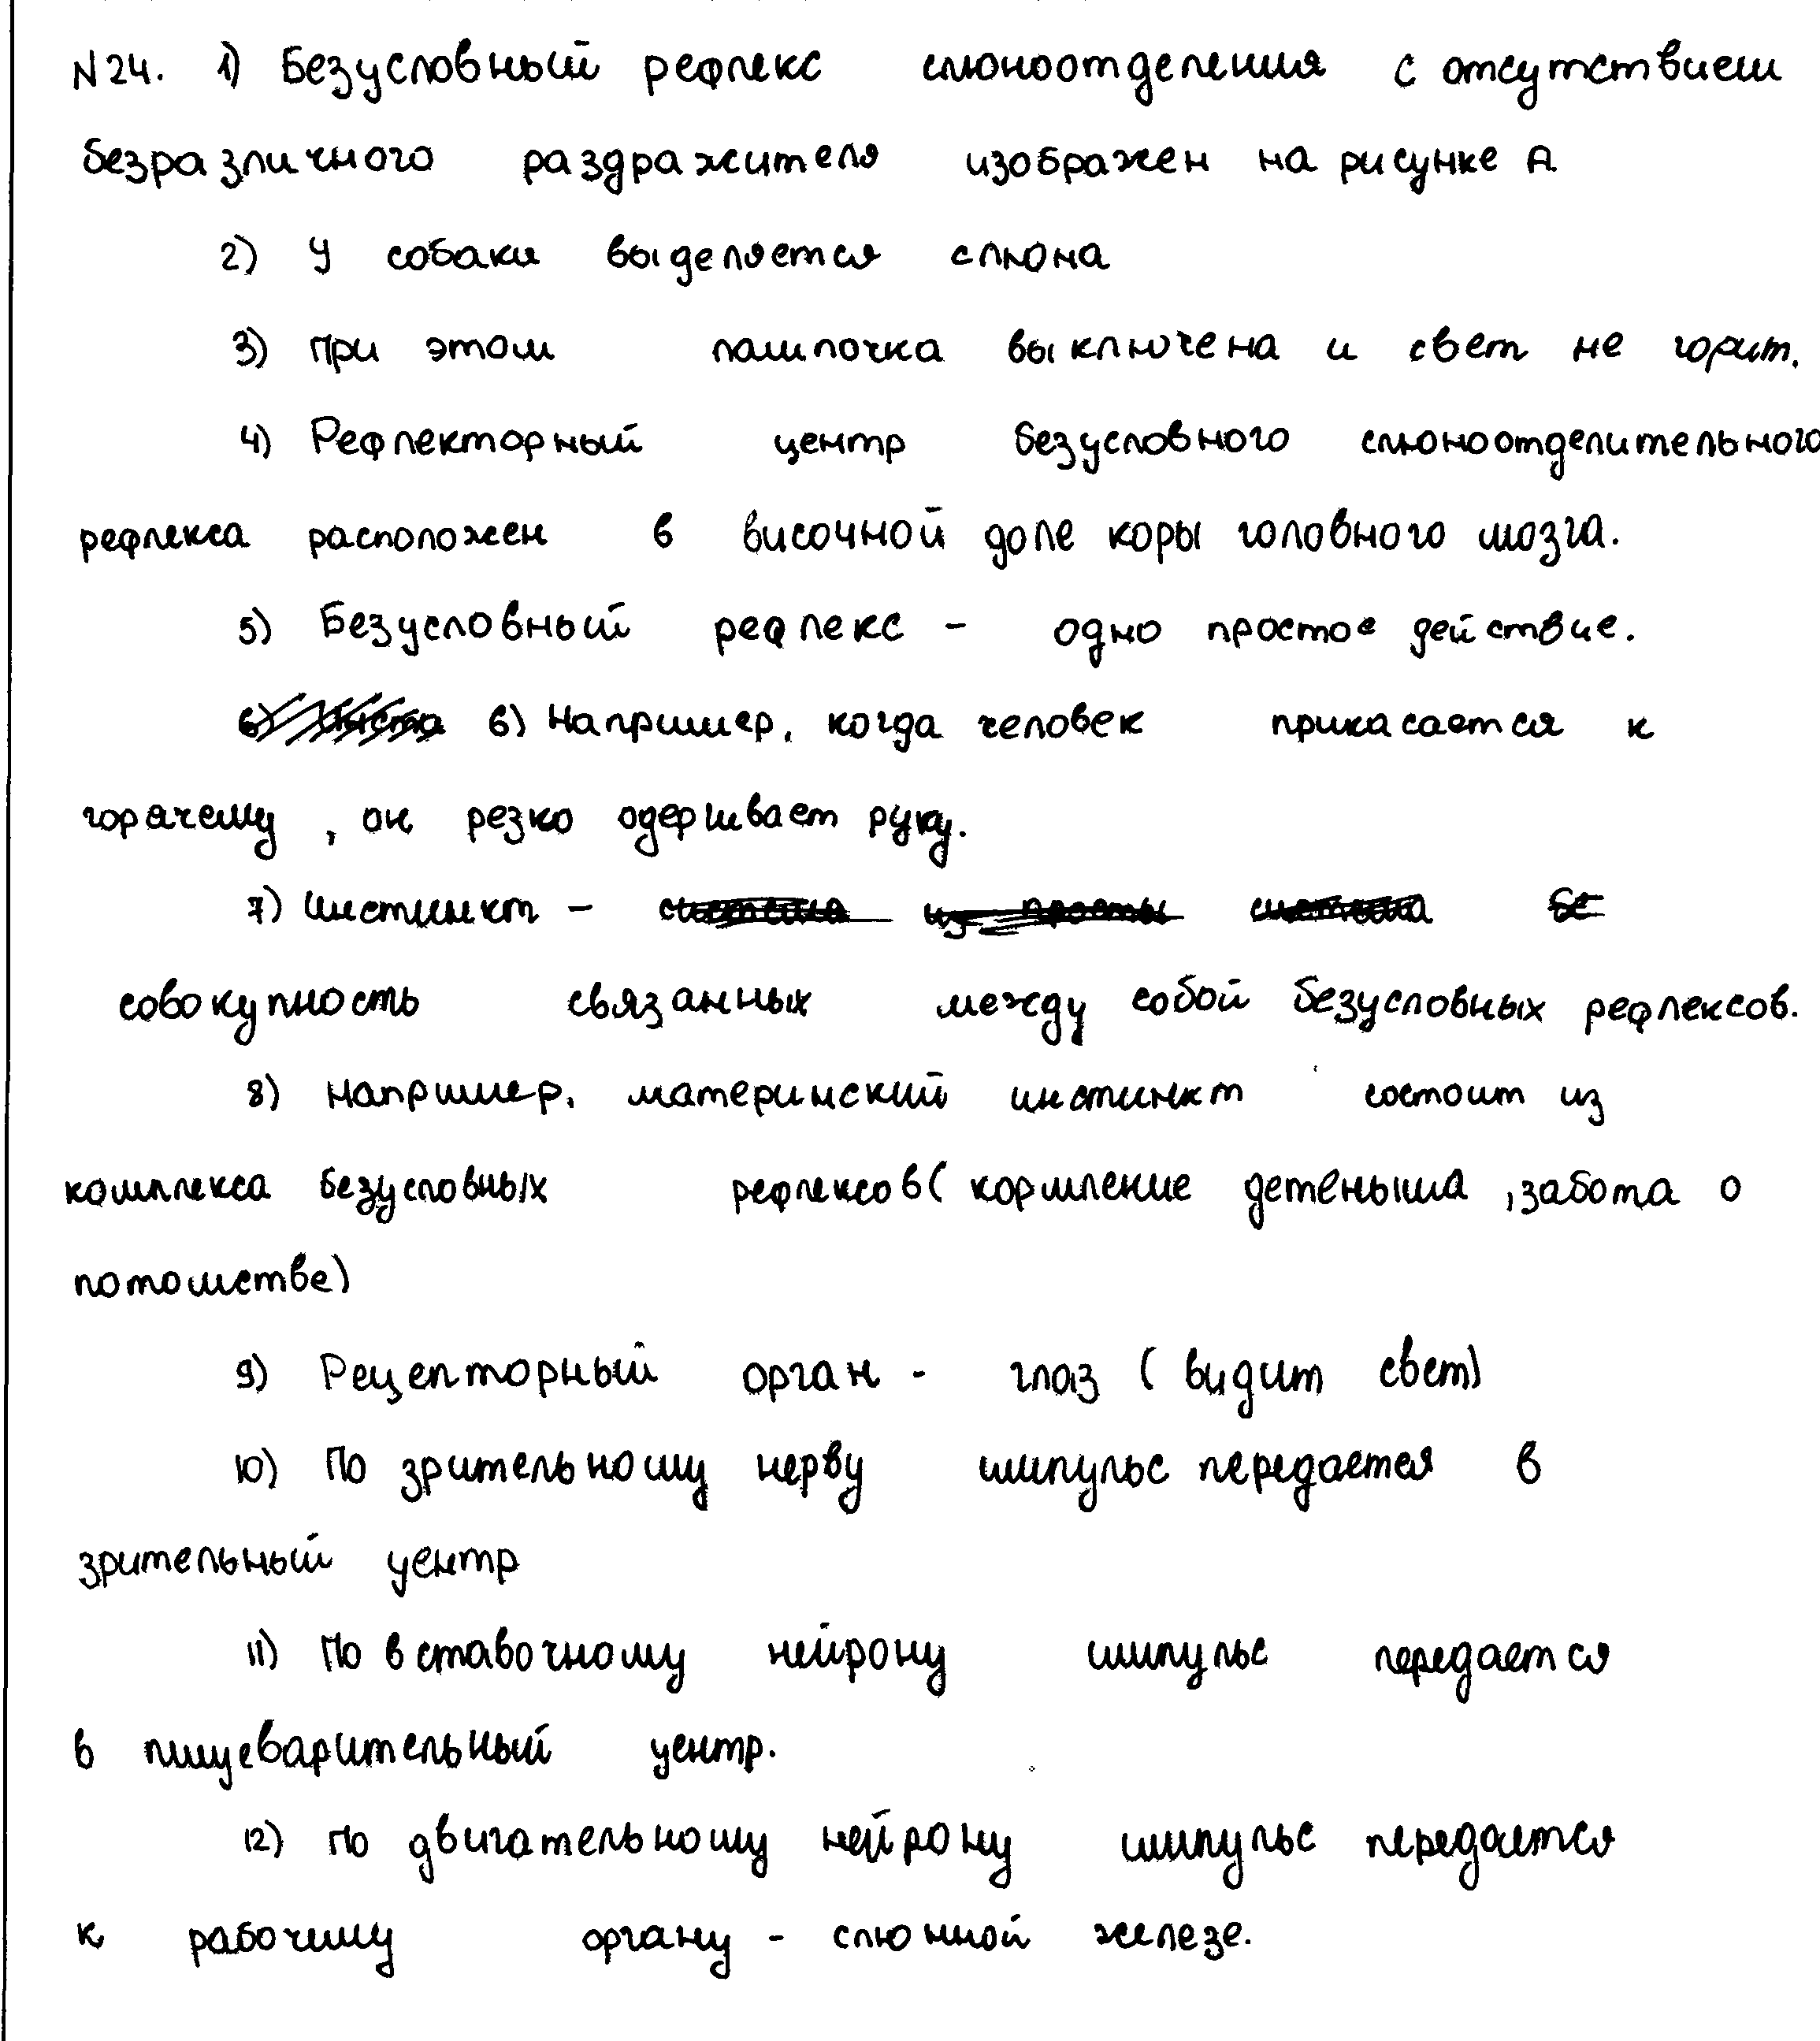 N24. 1) Безусловный рефлекс слюноотделения с отсутствием
безразличного раздражителя изображен на рисунке А
2) У собаки выделяется слюна
3) при этом лампочка выключена и свет не горит.
4) Рефлекторный центр безусловного слюноотделительного
рефлекса расположен в височной доле коры головного мозга.
5) Безусловный рефлекс - одно простое действие.
6) Например, когда человек прикасается к
горячему, он резко одергивает руку.
7) Инстинкт -
совокупность связанных между собой безусловных рефлексов.
8) Например, материнский инстинкт состоит из
комплекса безусловных рефлексов (кормление детеныша, забота о
потомстве)
9) Рецепторный орган - глаз (видит свет)
10) По зрительному нерву импульс передается в
зрительный центр
11) По вставочному нейрону импульс передается
в пищеварительный центр.
12) По двигательному нейрону импульс передается
к рабочиму органу - слюнной железе.